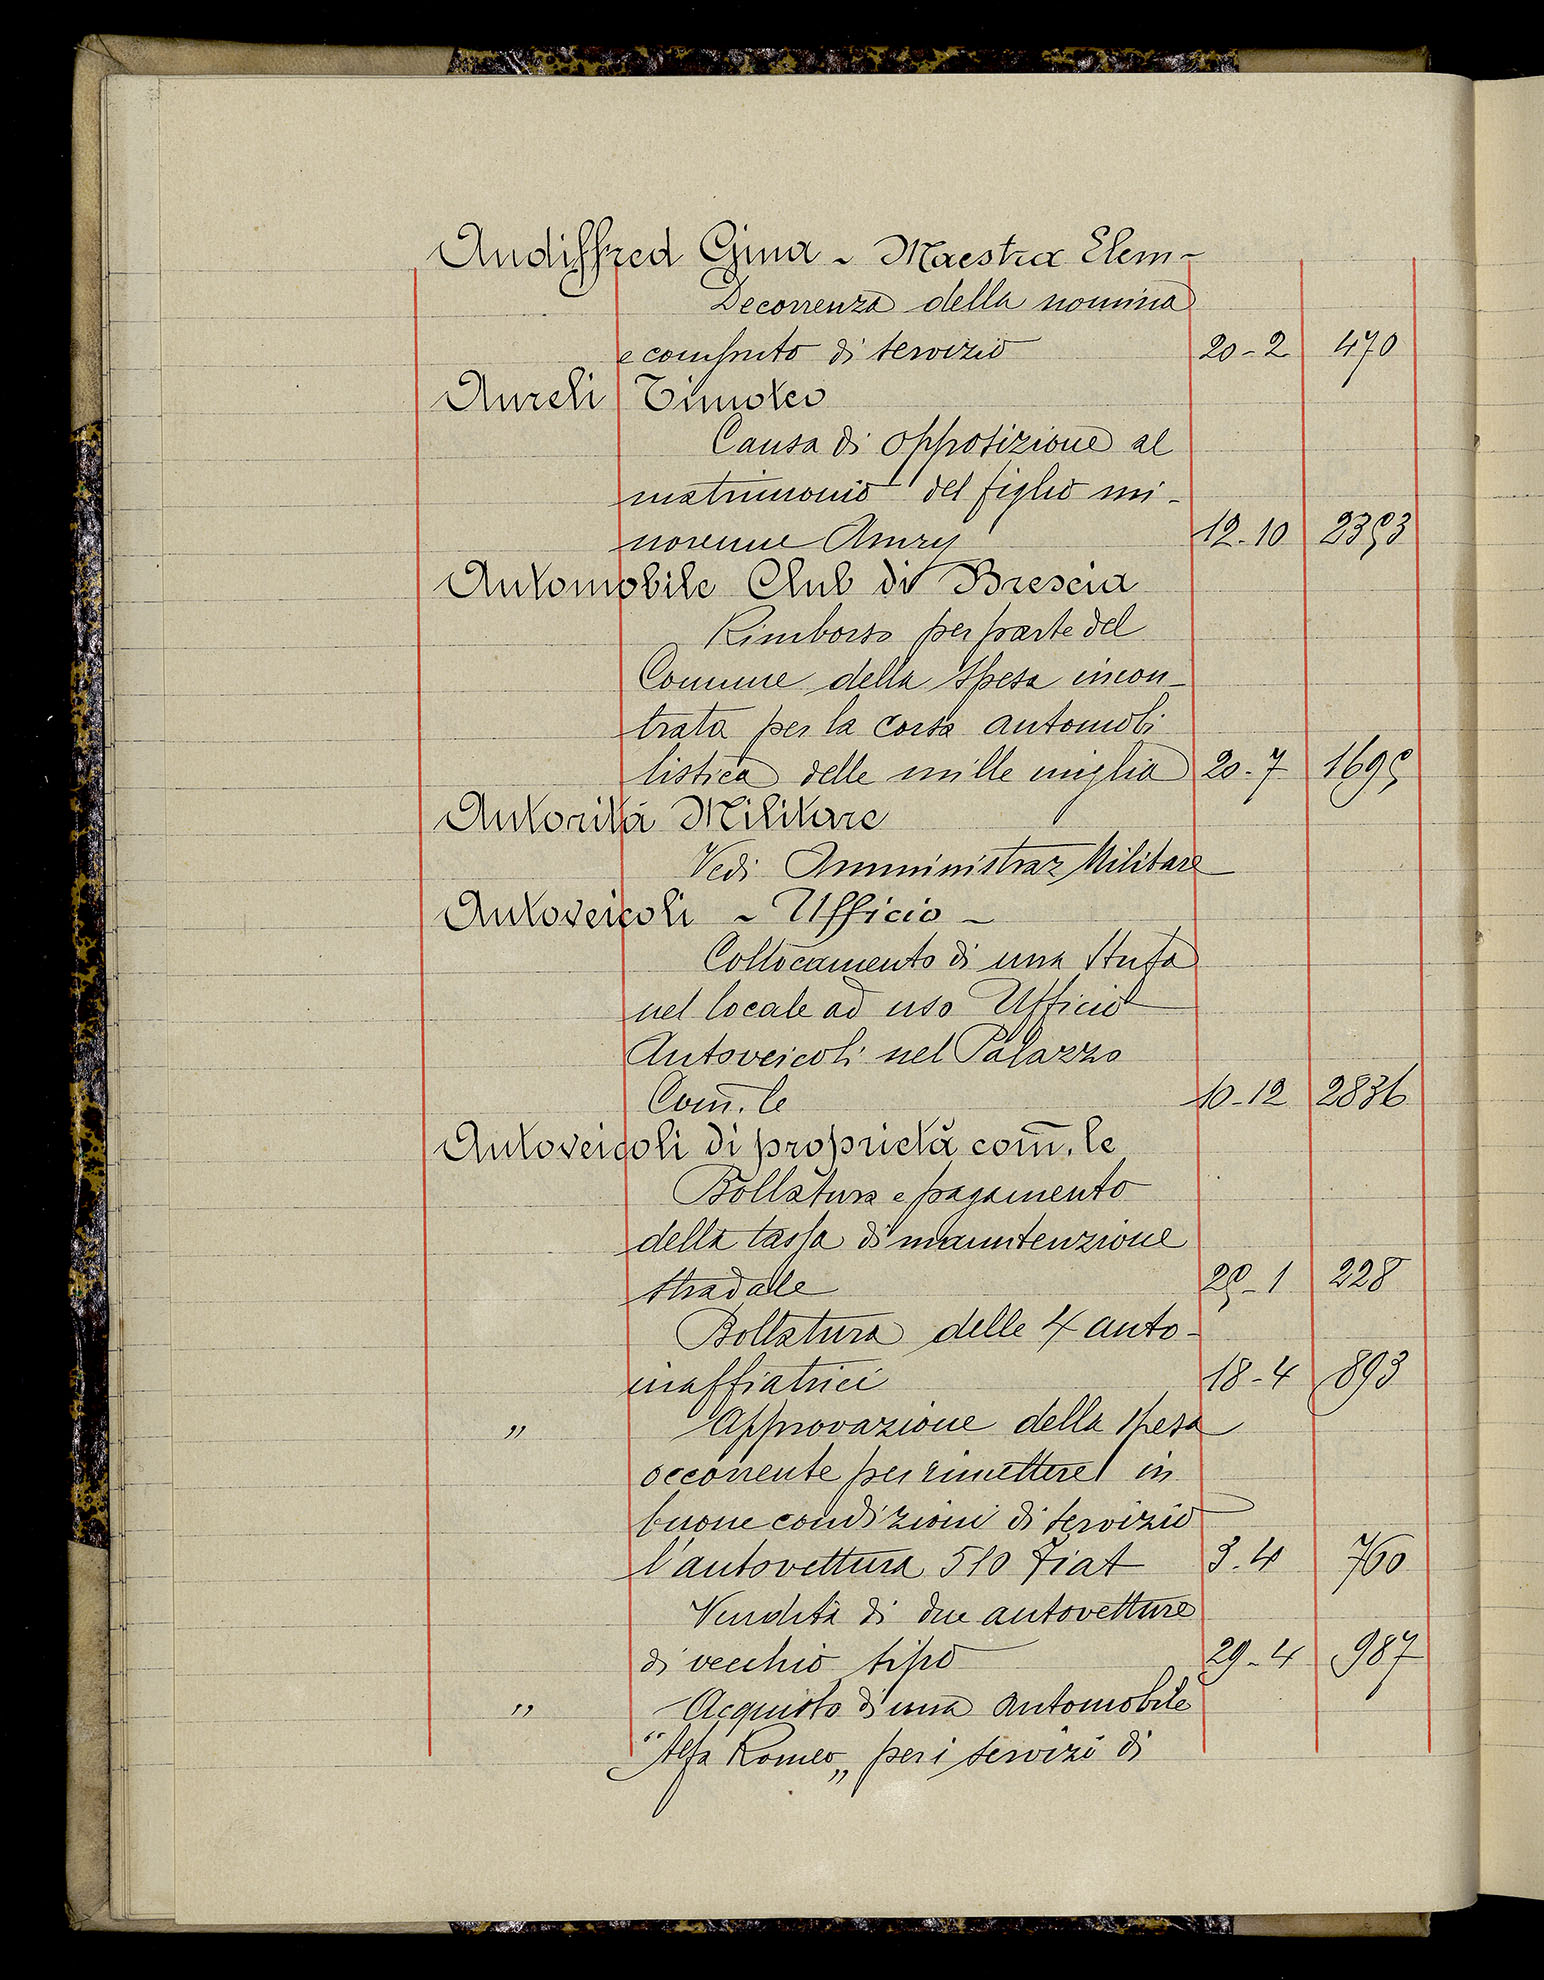 Audiffred Gina - Maestra Elem -
Decorrenza della nomina
e computo di servizio 20-2 470
Aureli Timoteo
Causa di opposizione al
matrimonio del figlio mi-
norenne Amry 12-10 2353
Automobile Club di Brescia
Rimborso per parte del
Comune della spesa incon-
trata per la corsa automobi
listica delle mille miglia 20-7 1695
Autorità Militare
Vedi Amministraz Militare
Autoveicoli - Ufficio -
Collocamento di una stufa
nel locale ad uso Ufficio
Autoveicoli nel Palazzo
Com̄.le 10-12 2836
Autoveicoli di proprietà com̄.le
Bollatura e pagamento
della tassa di manutenzione
stradale 25-1 228
Bollatura delle 4 auto-
inaffiatrici 18-4 893
" Approvazione della spesa
occorrente per rimettere in
buone condizioni di servizio
l'autovettura 510 Fiat 3.4 760
Vendita di due autovetture
di vecchio tipo 29-4 987
" Acquisto d'una automobile
"Alfa Romeo„ per i servizi di